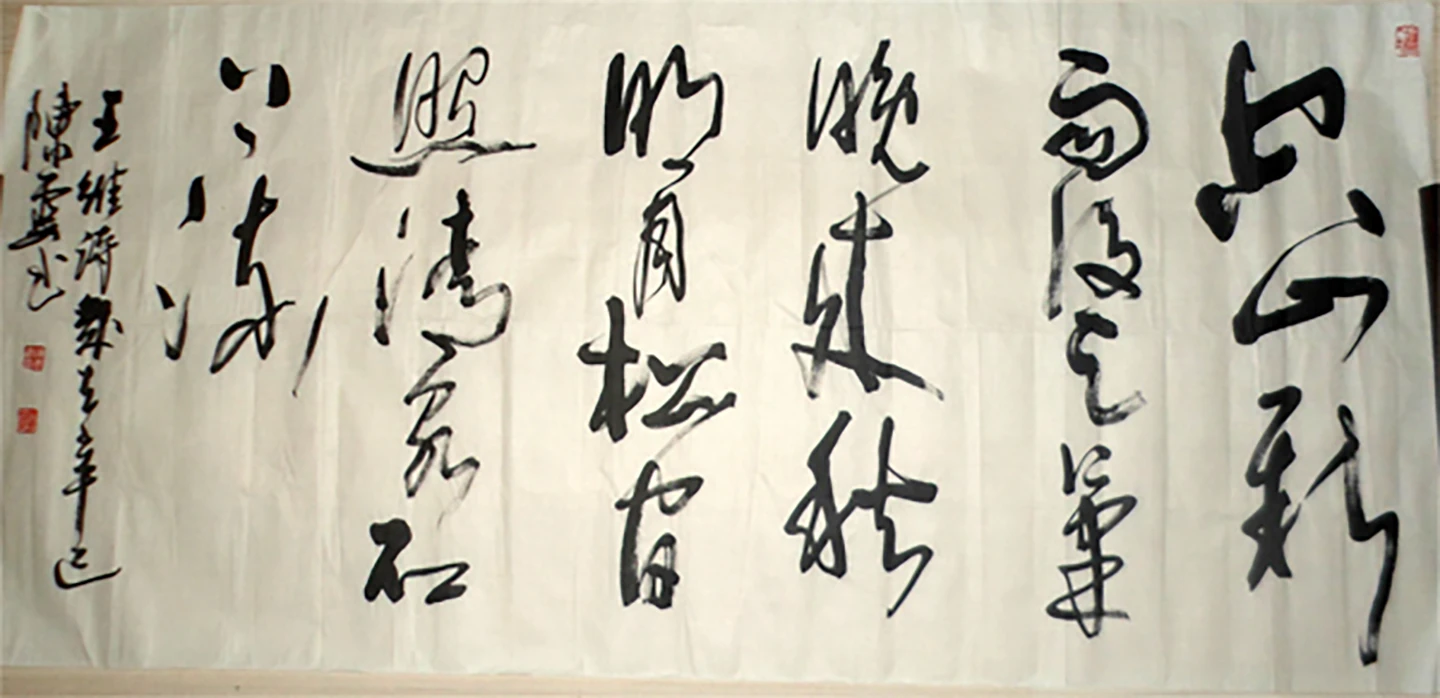 空山新
雨後天氣
晚來秋
明月松間
照清泉石
上流
王維詩歲在辛巳
陳雲书